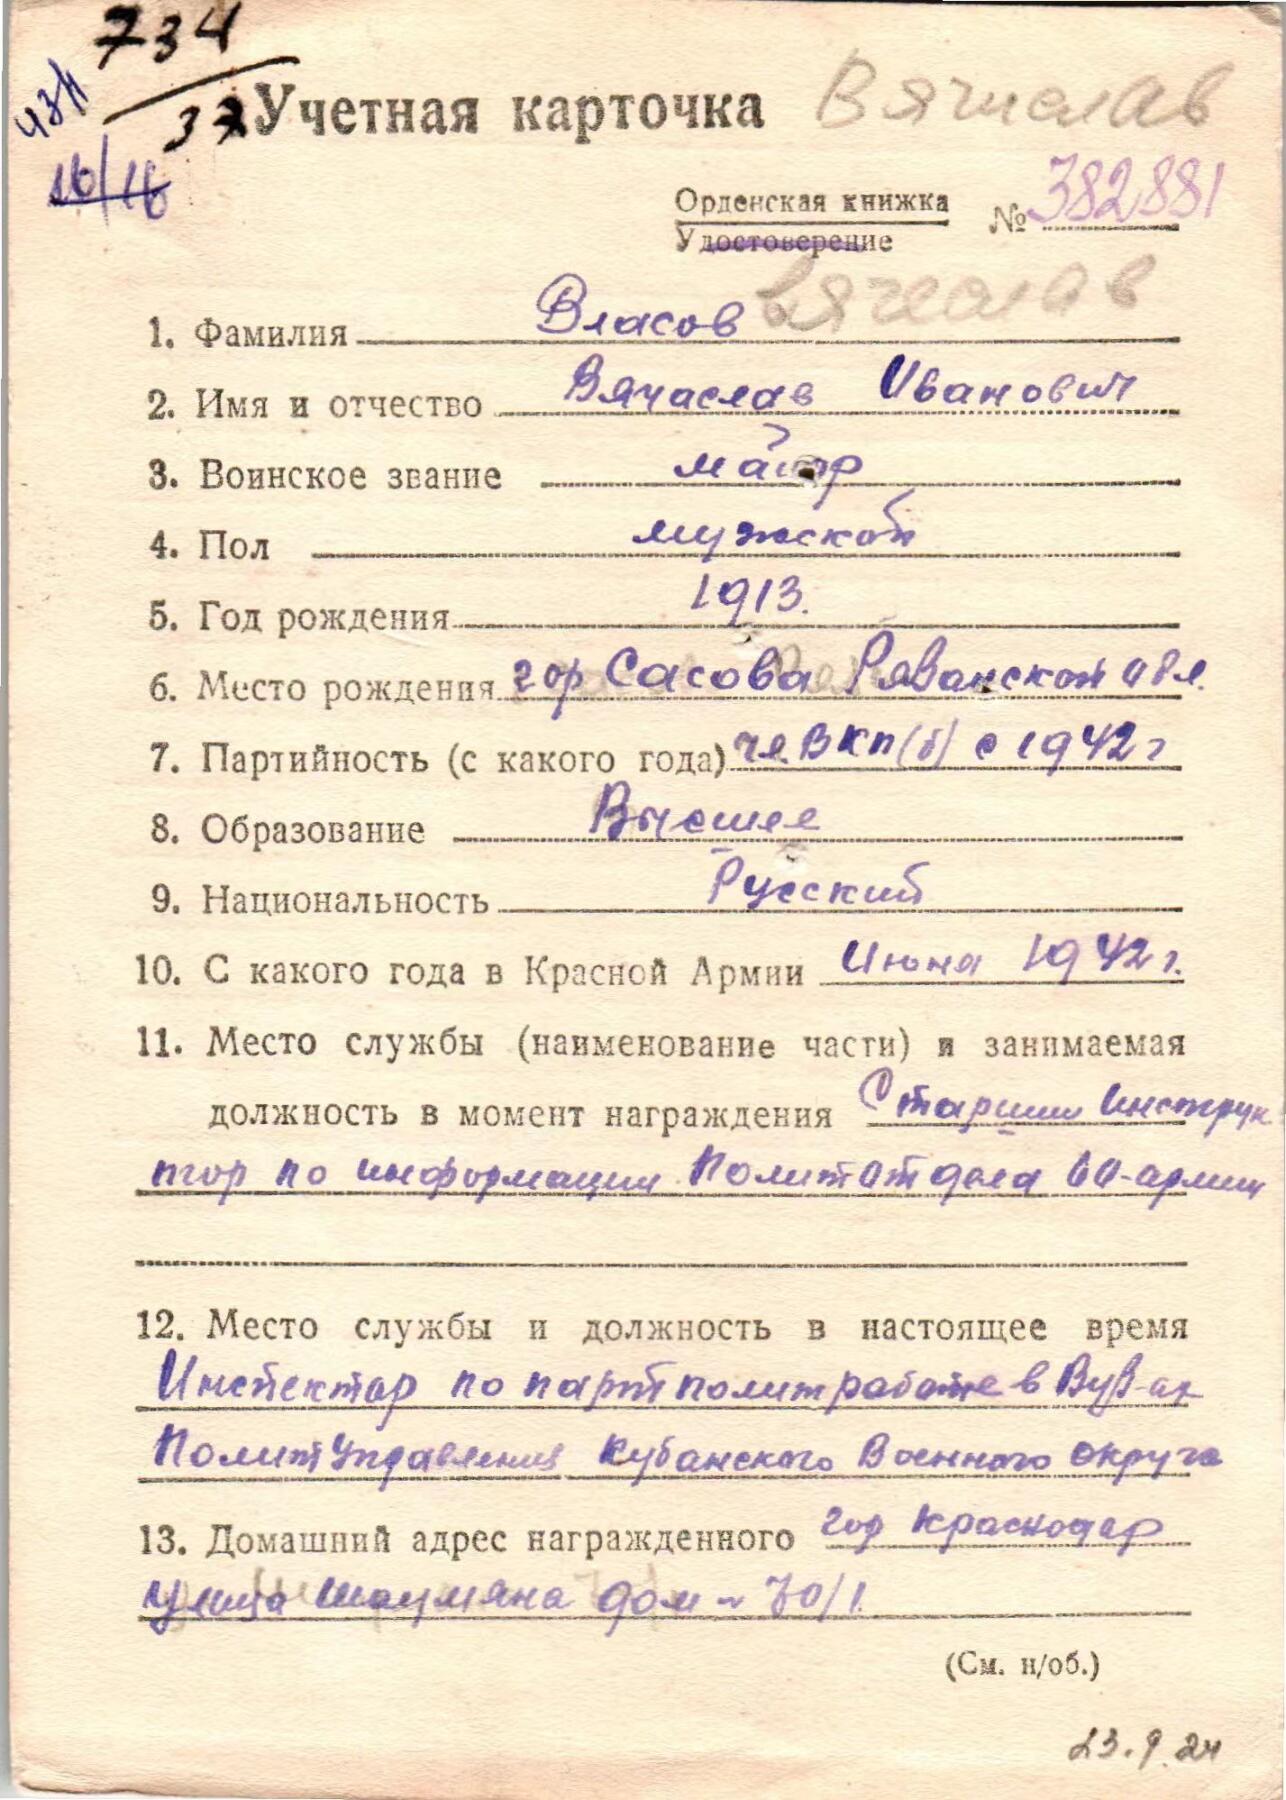 734
37
16/16
Учетная карточка Вячеслав
Орденская книжка № 382881
Удостоверение
Вячеслав
1. Фамилия Власов
2. Имя и отчество Вячаслав Иванович
3. Воинское звание майор
4. Пол мужской
5. Год рождения 1913.
6. Место рождения гор Сасова Рязанской обл.
7. Партийность (с какого года) чл. ВКП(б) с 1942 г
8. Образование Высшее
9. Национальность Русский
10. С какого года в Красной Армии Июня 1942 г.
11. Место службы (наименование части) и занимаемая
должность в момент награждения Старший Инструк
тор по информации Политотдела 60-армии
12. Место службы и должность в настоящее время
Инспектор по партполитработе в
Политуправления Кубанского Военного округа
13. Домашний адрес награжденного гор Краснодар
Улица Шаумяна дом 70/1.
(См. н/об.)
23.9.24